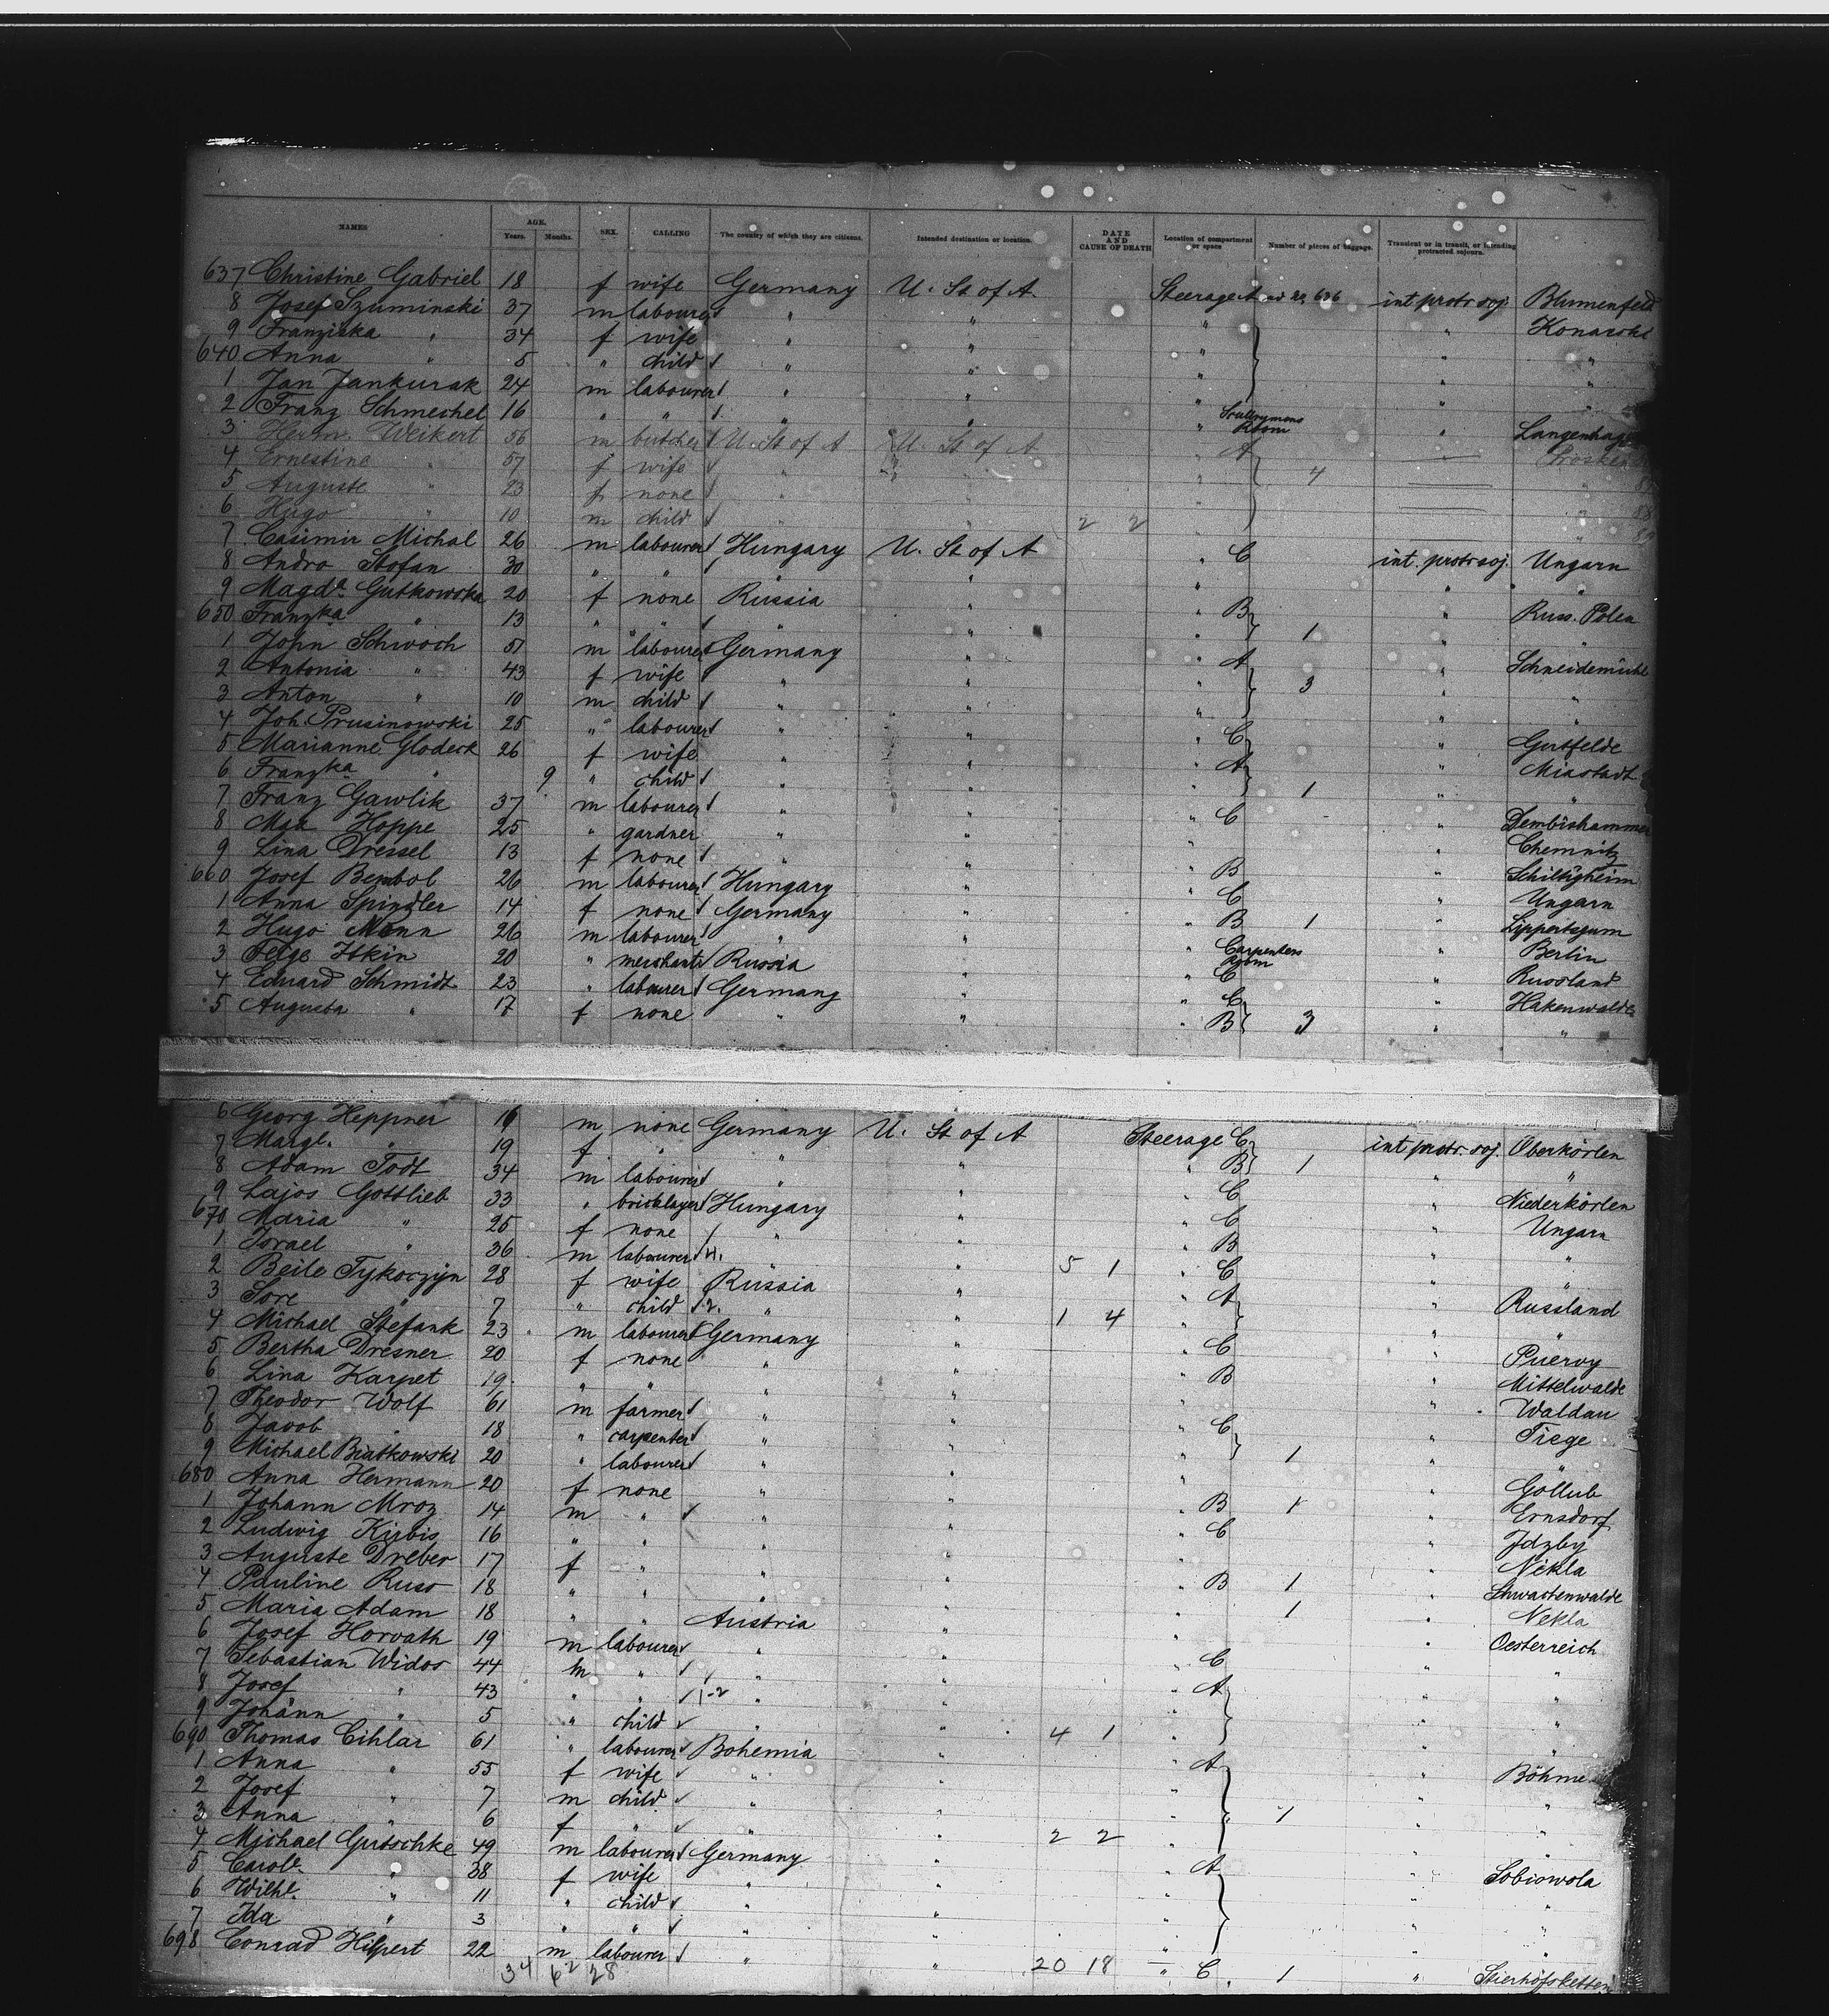 NAMES AGE. Years. Months. SEX. CALLING The country of which they are citizens. Intended destination or location. DATE AND CAUSE OF DEATH Location of compartment or space Number of pieces of baggage. Transient or in transit, or intending protracted sojourn.
637 Christine Gabriel 18 f wife Germany U. St of A. Steerage A 636 int protr soj. Blumenfeld
8 Josef Szuminski 37 m labourer " " " "
9 Franziska " 34 f wife " " " "
640 Anna " 5 " child " " " "
1 Jan Jankurak 24 m labourer " " " "
2 Franz Schmechel 16 " " " " " Room "
3 Herm. Weikert 56 m butcher U. St of A U. St of A " A
4 Ernestine " 57 f wife " " " 4
5 Auguste " 23 f none " " "
6 Hugo " 10 m child " " 2 2 "
7 Casimir Michal 26 m labourer Hungary U. St of A " C int. protr soj. Ungarn
8 Andro Stofan 30 " " " " " " "
9 Magda. Gutkowska 20 f none Russia " " B " Russ. Polen
650 Franzka " 13 " " " " " 1 " "
1 John Schwoch 51 m labourer Germany " " A " Schneidemühl
2 Antonia " 43 f wife " " " 3 " "
3 Anton " 10 m child " " " " "
4 Joh. Prusinowski 25 " labourer " " " C " Gutfelde
5 Marianne Glodeck 26 f wife " " " A " Miastadt
6 Franzka " 9 " child " " " 1 " "
7 Franz Gawlik 37 m labourer " " " C " Dembishammer
8 Max Hoppe 25 " gardner " " " " Chemnitz
9 Lina Dressel 13 f none " " " B " Schiltigheim
660 Josef Bembol 26 m labourer Hungary " " C " Ungarn
1 Anna Spindler 14 f none Germany " " B 1 "
2 Hugo Mann 26 m labourer " " " Carpenters Room " Berlin
3 Itkin 20 " merchant Russia " " C " Russland
4 Eduard Schmidt 23 " labourer Germany " " C " Hakenwalde
5 Augusta " 17 f none " " " B 3 " "
6 Georg Heppner 16 m none Germany U. St of A Steerage C int protr. soj. Oberkörlen
7 Margt. " 19 f " " " " B 1 " "
8 Adam Todt 34 m labourer " " " C " Niederkörlen
9 Lajos Gottlieb 33 " bricklayer Hungary " " C " Ungarn
670 Maria " 25 f none " " " B " "
1 Israel " 36 m labourer " " 5 1 " C " "
2 Beile Tykoczyn 28 f wife Russia " " A " Russland
3 Sore " 7 " child " " 1 4 " " "
4 Michael Stefank 23 m labourer Germany " " C "
5 Bertha Dresner 20 f none " " " B " Mittelwalde
6 Lina Karpet 19 " " " " " " Waldau
7 Theodor Wolf 61 m farmer " " " C " Tiege
8 Jacob " 18 " carpenter " " " 1 " "
9 Michael Biatkowski 20 " labourer " " " " Gollub
680 Anna Hermann 20 f none " " " B 1 " Ernsdorf
1 Johann Mroz 14 m " " " " C "
2 Ludwig Kirbis 16 " " " " " " Nekla
3 Auguste Dreber 17 f " " " " B 1 "
4 Pauline Russ 18 " " " " " 1 " Nekla
5 Maria Adam 18 " " Austria " " " Oesterreich
6 Josef Horvath 19 m labourer " " " C " "
7 Sebastian Widos 44 m " " " " A " "
8 Josef " 43 " " 1-2 " " " " "
9 Johann " 5 " child " " 4 1 " " "
690 Thomas Cihlar 61 " labourer Bohemia " " A " Böhmen
1 Anna " 55 f wife " " " " "
2 Josef " 7 m child " " " 1 " "
3 Anna " 6 f " " " 2 2 " " "
4 Michael Gutschke 49 m labourer Germany " " A " Sobiowola
5 Carole. " 38 f wife " " " " "
6 Wilh. " 11 " child " " " " "
7 Ida " 3 " " " " " " "
698 Conrad Hilpert 22 m labourer " " 20 18 " C 1 "
34 62 28